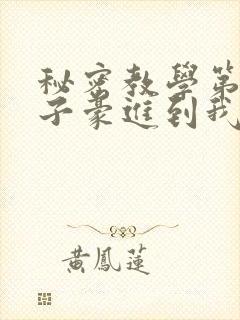 秘密教學第
子豪進到我
黃鳳蓮